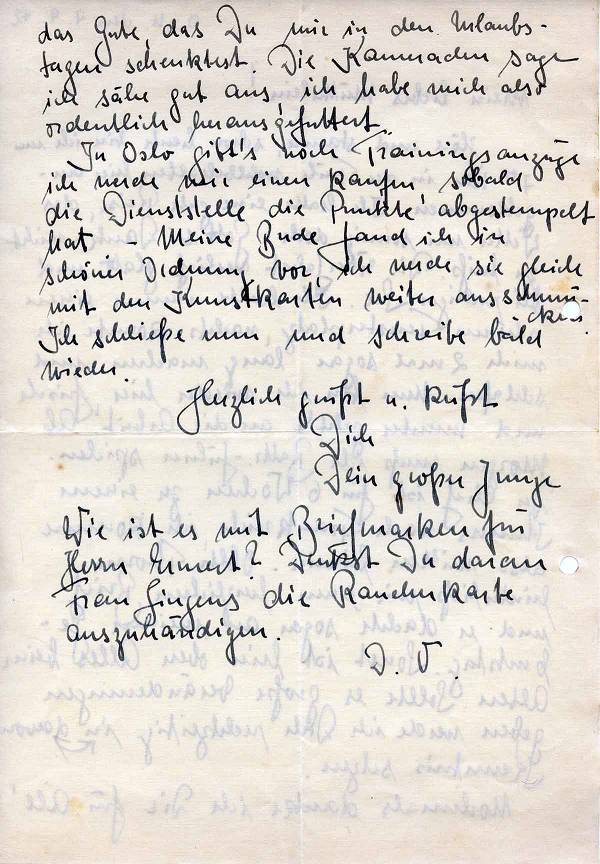 das Gute, das Du mir in den Urlaubs-
tagen schenktest. Die Kameraden sagen
ich sähe gut aus, ich habe mich also
ordentlich herausgefuttert.
In Oslo gibt's noch Trainingsanzüge
ich werde mir einen kaufen, sobald
die Dienststelle die Punkte abgestempelt
hat. - Meine Bude fand ich in
schöner Ordnung vor, ich werde sie gleich
mit den Kunstkarten weiter ausschmü-
cken.
Ich schließe nun und schreibe bald
wieder.
Herzlich grüßt u. küßt
Dich
Dein großer Junge
Wie ist es mit Briefmarken für
Herrn Ermert? Denkst Du daran
Frau Gingens die Raucherkarte
auszuhändigen.
D. O.